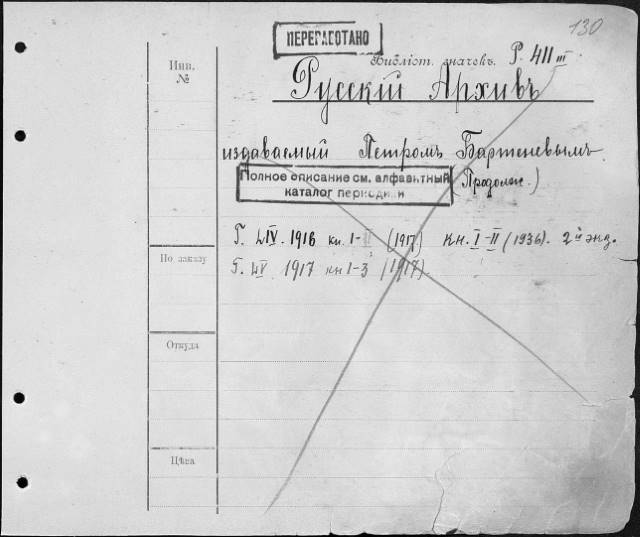 130
ПЕРЕРАБОТАНО
Инв.
№
Библіот. значокъ. Р. 411 III
Русскій Архивъ
издаваемый Петромъ Бартеневымъ
Полное описание см. алфавитный
каталог периодики
(Продолж.)
Г. LIV. 1916 кн. I-II (1917) кн. I-II (1936). 2й экз.
По заказу
Г. LV 1917 кн 1-3 (1917)
Откуда
Цѣна